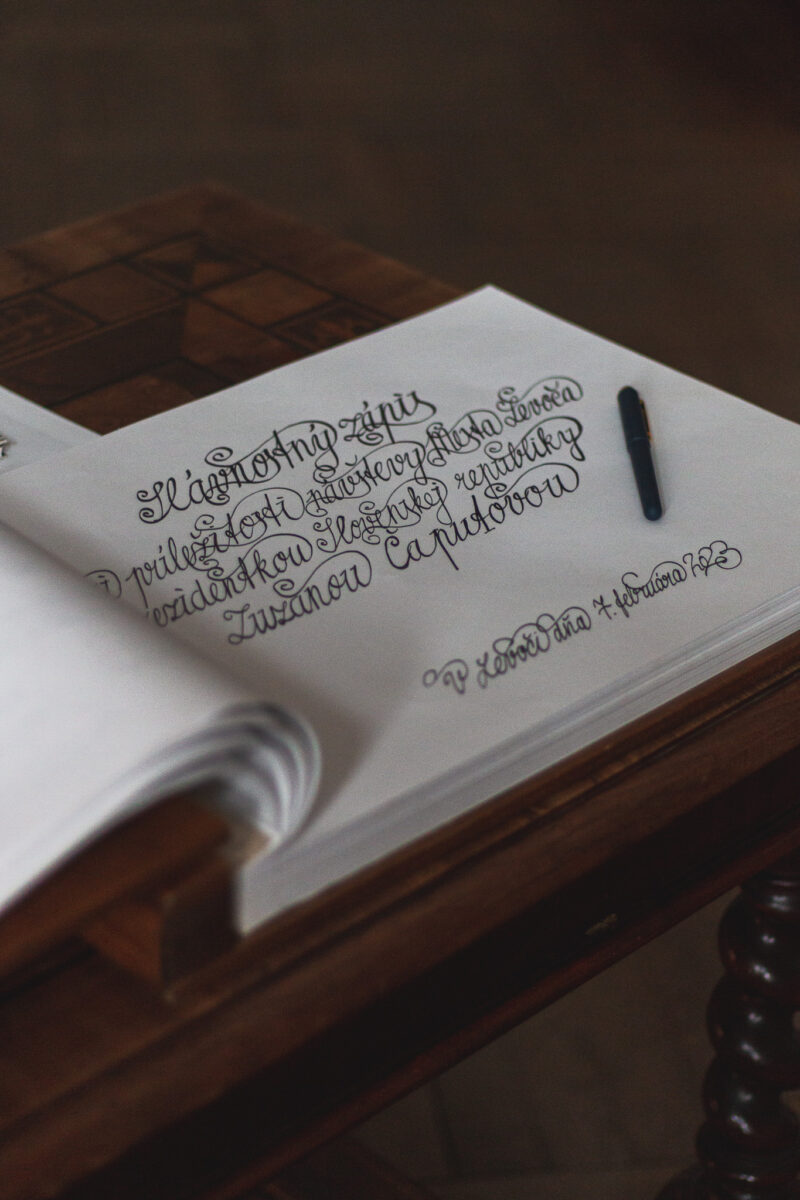 Slávnostný zápis
i príležitosti návštevy Mesta Levoča
ezidentkou Slovenskej republiky
Zuzanou Čaputovou
V Levoči dňa 7. februára 2023